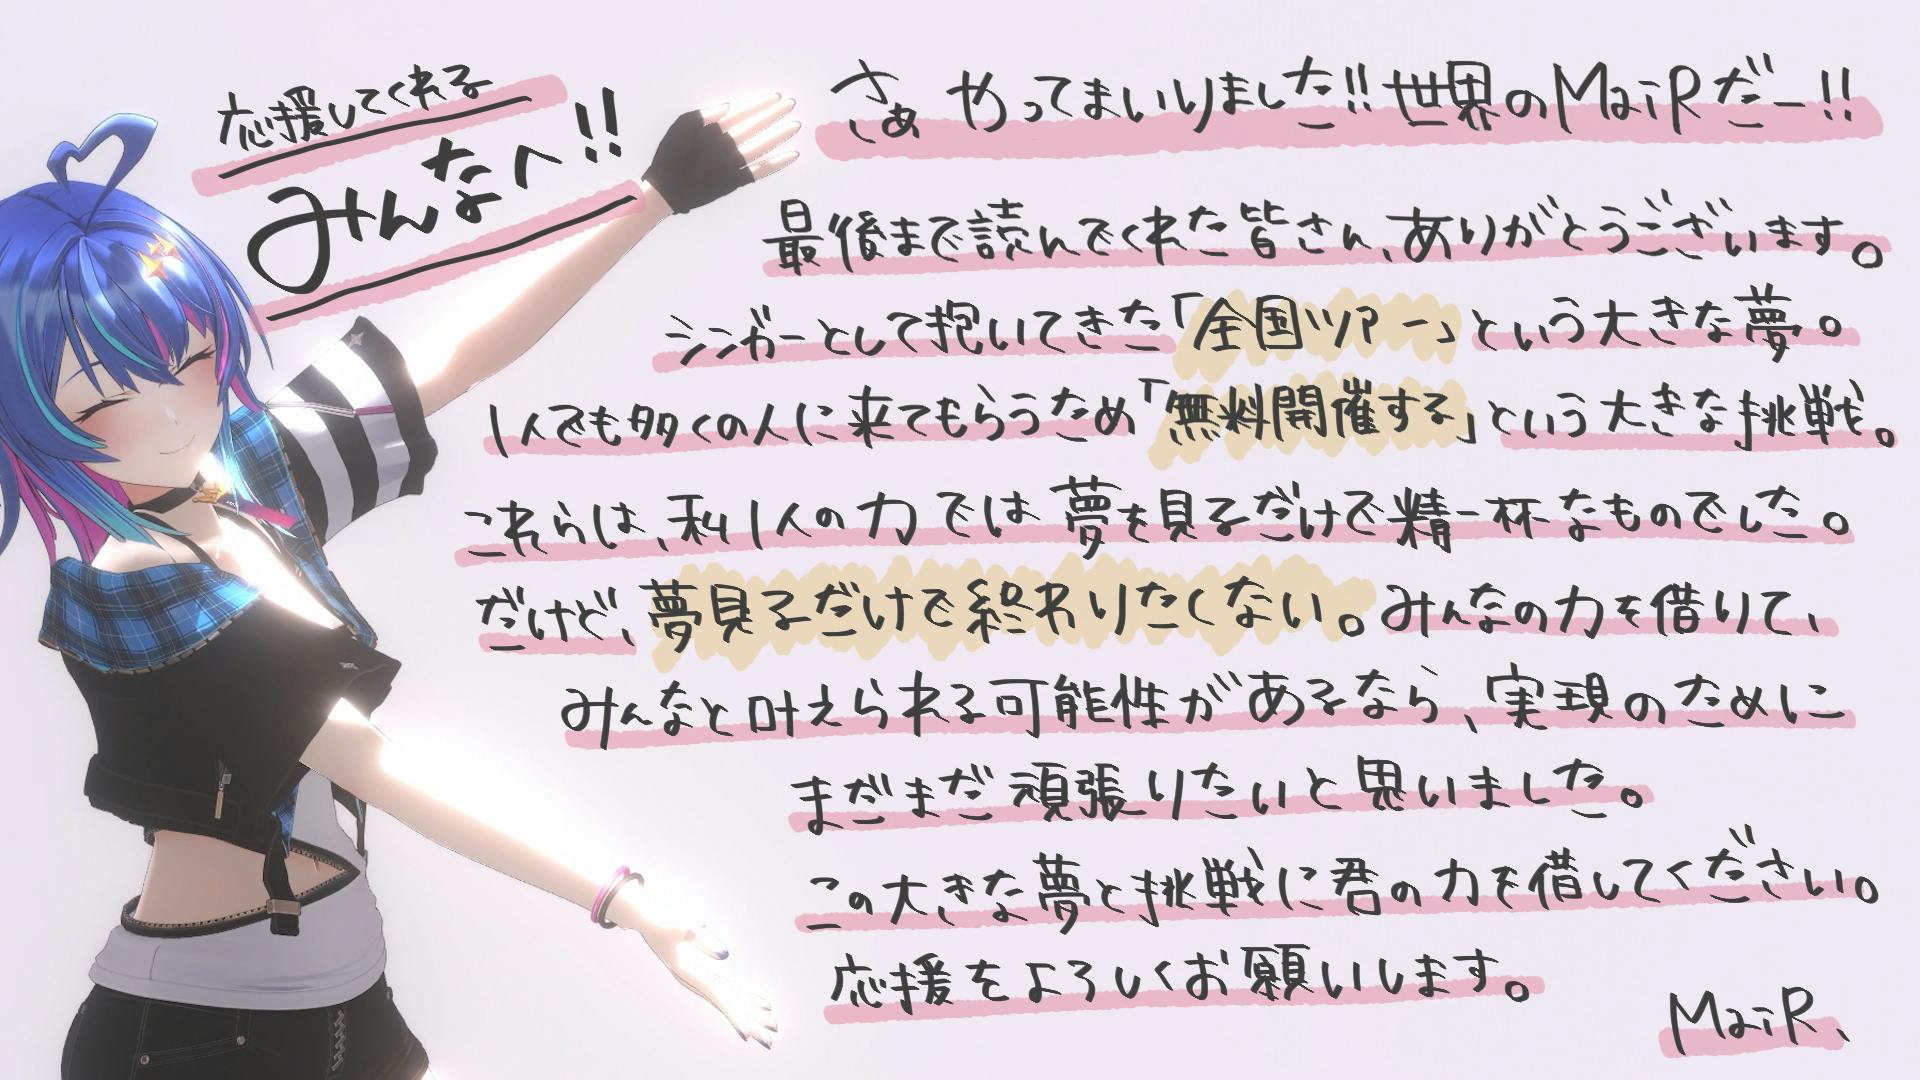 応援してくれる
みんなへ!!
さぁ やってまいりました!!世界のMaiRだー!!
最後まで読んでくれた皆さん、ありがとうございます。
シンガーとして抱いてきた「全国ツアー」という大きな夢。
1人でも多くの人に来てもらうため「無料開催する」という大きな挑戦。
これらは、私1人の力では夢を見るだけで精一杯なものでした。
だけど、夢見るだけで終わりたくない。みんなの力を借りて、
みんなと叶えられる可能性があるなら、実現のために
まだまだ頑張りたいと思いました。
この大きな夢と挑戦に君の力を借してください。
応援をよろしくお願いします。
MaiR、